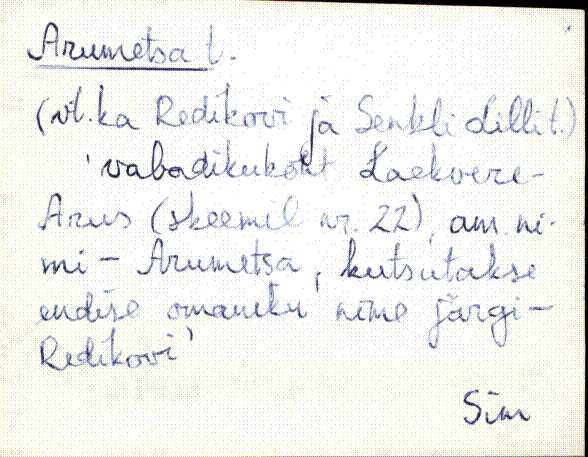 Arumetsa t.
(vt. ka Redikovi ja Senkli Lillit.)
'vabadikukoht Laekvere-
Arus (skeemil nr. 22), am. ni-
mi - Arumetsa, kutsutakse
endise omaniku nime järgi -
Redikovi'
Sim